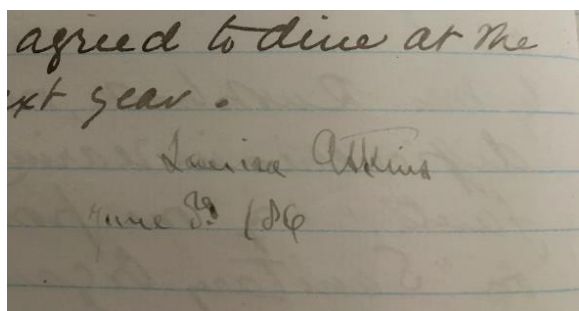 agreed to dine at the
ext year.
Louisa Atkins
June 3 /86